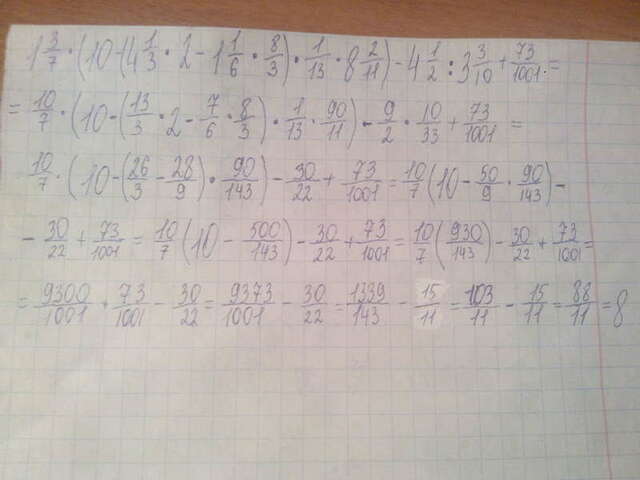 1 3/7 · (10 - (4 1/3 · 2 - 1 1/6 · 8/3) · 1/13 · 8 2/11) - 4 1/2 : 3 3/10 + 73/1001. =
= 10/7 · (10 - (13/3 · 2 - 7/6 · 8/3) · 1/13 · 90/11) - 9/2 · 10/33 + 73/1001 =
10/7 · (10 - (26/3 - 28/9) · 90/143) - 30/22 + 73/1001 = 10/7 (10 - 50/9 · 90/143) -
- 30/22 + 73/1001 = 10/7 (10 - 500/143) - 30/22 + 73/1001 = 10/7 (930/143) - 30/22 + 73/1001 =
= 9300/1001 + 73/1001 - 30/22 = 9373/1001 - 30/22 = 1339/143 - 15/11 = 103/11 - 15/11 = 88/11 = 8